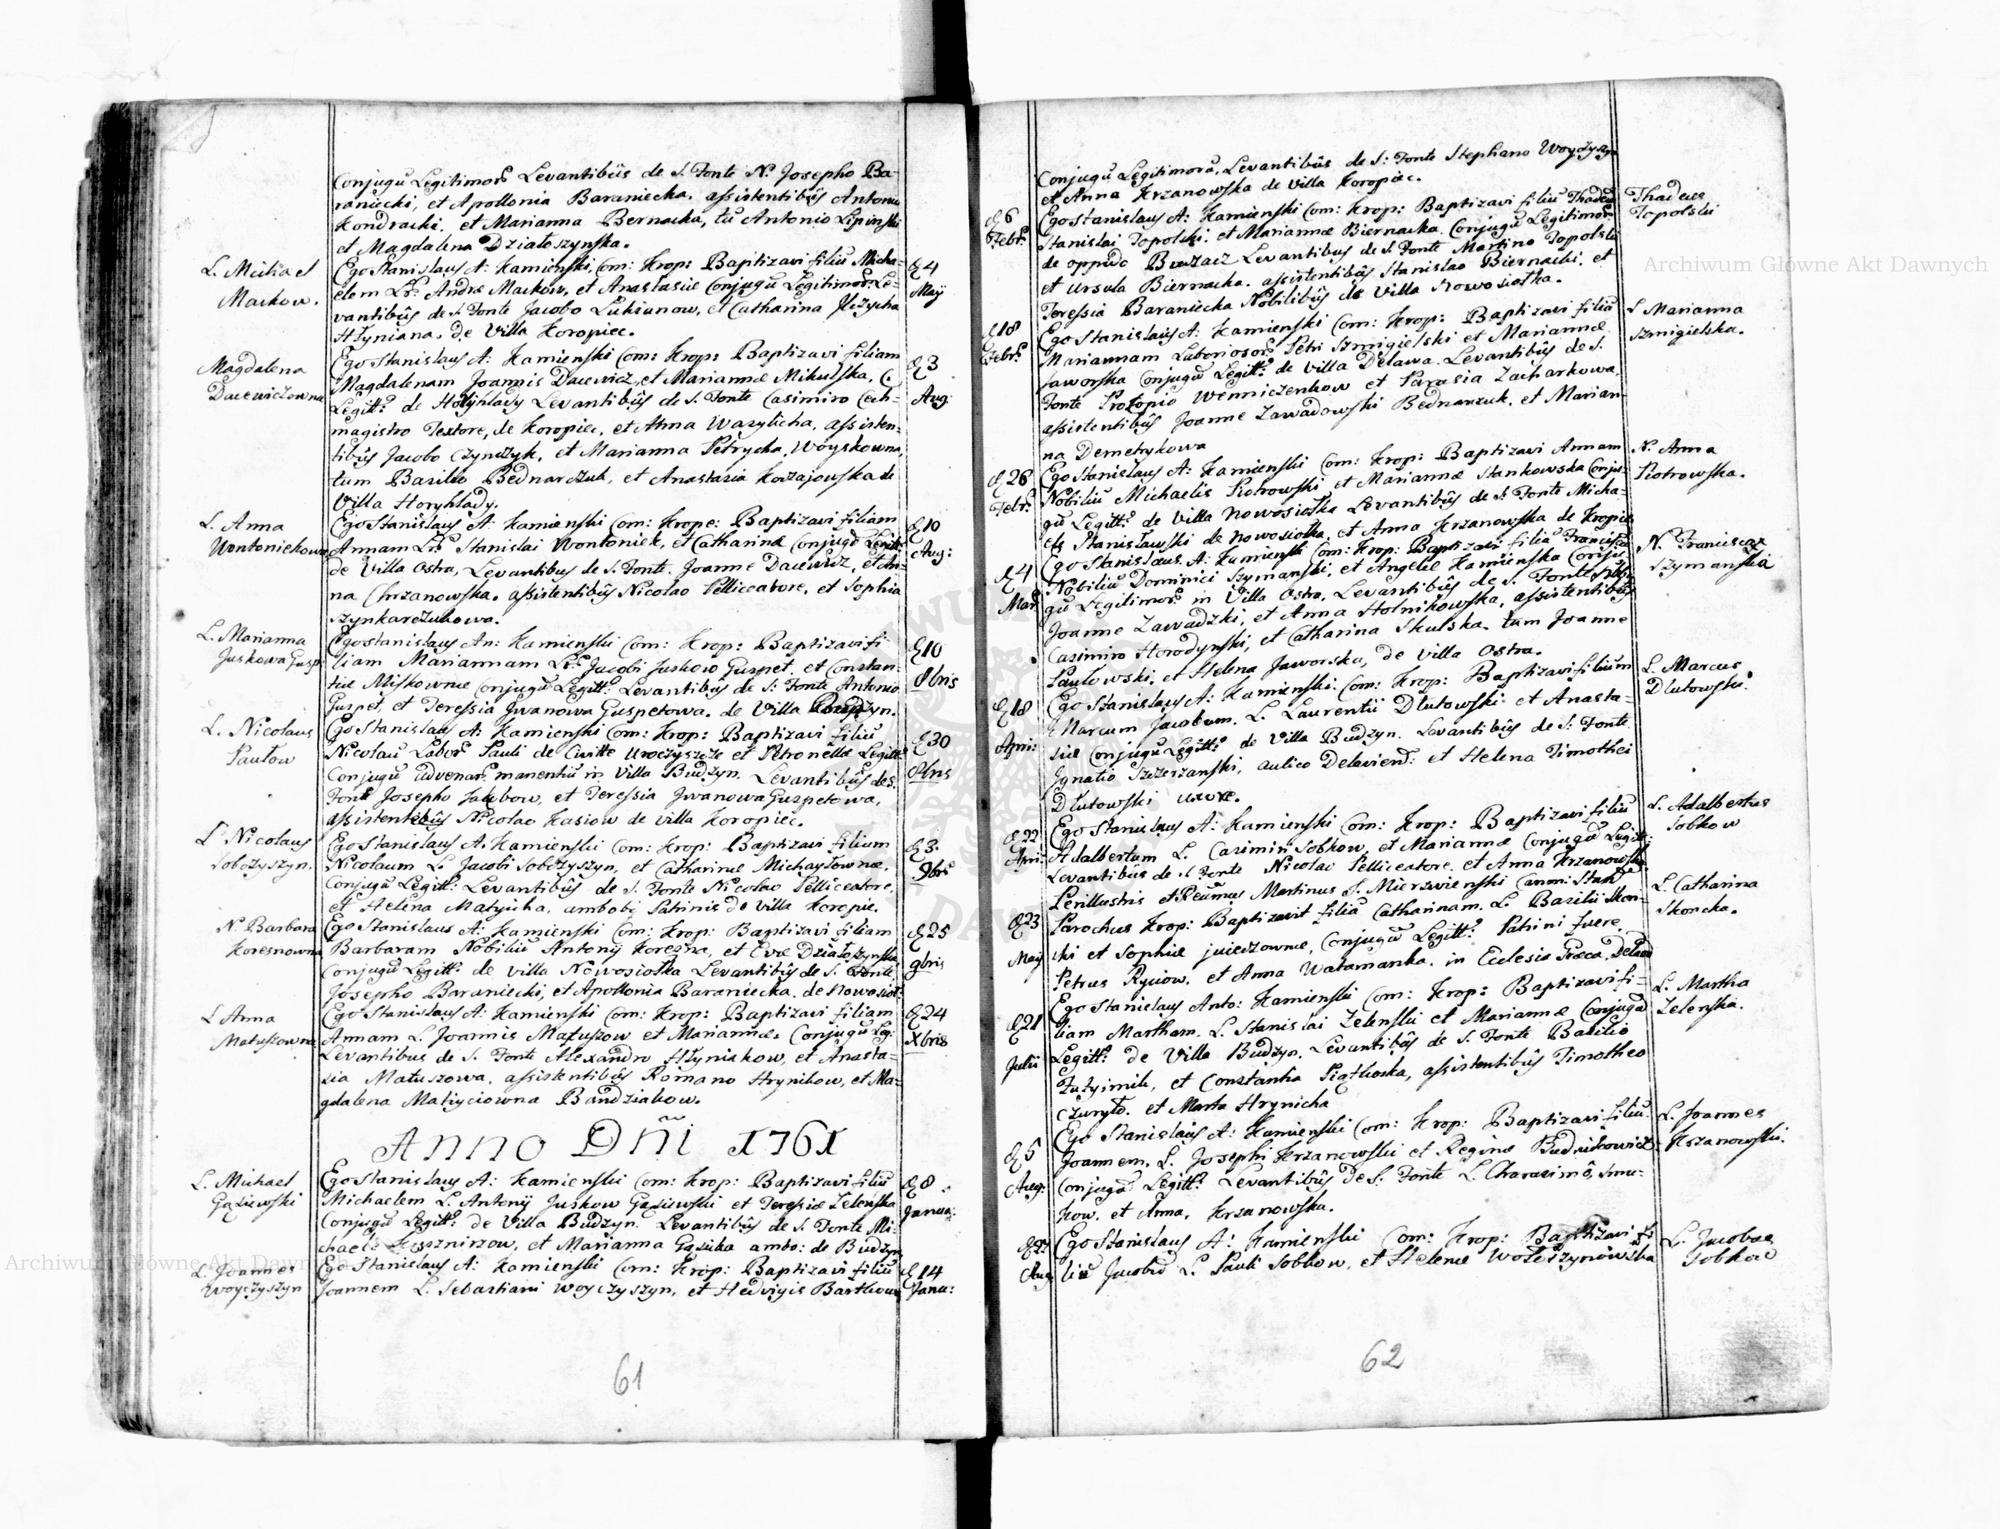 Conjugũ Legitimor Levantibûs de S. Fonte N. Josepho Ba-
raniecki, et Apollonia Baraniecka, assistentibûs Antonio
Kondracki, et Marianna Bernacka, tũ Antonio Lipinski
et Magdalena Działoszynska.
L. Michael
Markow.
Ego Stanislaus A: Kamienski Com: Krop: Baptizavi filiũ Micha-
elem Lr: Andreæ Markow, et Anastasiæ Conjugũ Legitimor: Le-
vantibûs de S. Fonte Jacobo Lukianow, et Catharina
Hłyniana, de Villa Koropiec.
D 4
Maÿ
Magdalena
Dacewiczowna
Ego Stanislaus A: Kamienski Com: Krop: Baptizavi filiam
Magdalenam Joannis Dacewicz, et Mariannæ Mikulska, C.
Legitt: de Horyhlady Levantibûs de S. Fonte Casimiro Cech-
magistro Textore, de Koropiec, et Anna Wasylicha, assisten-
tibûs Jacobo Czynczyk, et Marianna Petrycha, Woyskowna,
tum Basilio Bednarczuk, et Anastasia Korzajowska de
Villa Horyhlady.
D 3
Aug:
L. Anna
Wontoniekowna
Ego Stanislaus A: Kamienski Com: Krope: Baptizavi filiam
Annam Lr: Stanislai Wontoniek, et Catharinæ Conjugũ Legitt:
de Villa Ostra, Levantibus de S. Fonte. Joanne Dacewicz, et An-
na Chrzanowska. assistentibûs Nicolao Pelliceatore, et Sophia
Szynkarczukowa.
D 10
Aug:
L. Marianna
Juskowa Gusp
Ego Stanislaus An: Kamienski Com: Krop: Baptizavi fi-
liam Mariannam Lr: Jacobi Juskow Guspet, et Constan-
tiæ Miskownæ Conjugũ Legitt: Levantibûs de S: Fonte Antonio
Guspet, et Teressia Jwanowa Guspetowa. de Villa Budzyn.
D 10
8bris
L. Nicolaus
Pautow
Ego Stanislaus A: Kamienski Com: Krop: Baptizavi filiũ
Nicolaũ Labor: Pauli de Civitte Uroczyszcze et Petronellæ Legitt:
Conjugũ advenar: manentiũ in Villa Budzyn. Levantibûs de S.
Fonte Josepho Jakubow, et Teressia Jwanowa Guspetowa,
assistentibûs Nicolao Kasiow de villa Koropiec.
D 30
8bris
L Nicolaus
Sobczyszyn.
Ego Stanislaus A. Kamienski Com: Krop: Baptizavi filium
Nicolaum L. Jacobi Sobczyszyn, et Catharinæ Michayłownæ,
Conjugũ Legitt: Levantibûs de S. Fonte Nicolao Pelliceatore,
et Helena Matyicha, ambobi Patrinis de Villa Koropie.
D 3.
9bris
N. Barbara
Koresnowna
Ego Stanislaus A: Kamienski Com: Krop: Baptizavi filiam
Barbaram Nobiliũ Antonij Korezna, et Evæ Działoszynska
Conjugũ Legitt: de villa Nowosiołka Levantibûs de S. Fonte
Josepho Baraniecki, et Apollonia Baraniecka. de Nowosioł:
D 25
9bris
L Anna
Matuszowna
Ego Stanislaus A: Kamienski Com: Krop: Baptizavi filiam
Annam L. Joannis Matuszow et Mariannæ. Conjugũ Leg:
Levantibus de S. Fonte Alexandro Hłyniakow, et Anasta-
sia Matuszowa, assistentibûs Romano Hrynikow, et Ma-
gdalena Matiyciowna Bandziakow.
D 24
Xbris
Anno Dñi 1761
L. Michael
Gąsiewski
Ego Stanislaus A: Kamienski Com: Krop: Baptizavi filiũ
Michaelem L. Antonij Juskow Gąsiewski et Teressiæ Zelenska
Conjugũ Legitt: de Villa Budzyn. Levantibûs de S. Fonte Mi-
chaele Kusznirzow, et Marianna Gąsika ambo: de Budzyn
D 8.
Janua:
L. Joannes
Woyczyszyn
Ego Stanislaus A: Kamienski Com: Krop: Baptizavi filiũ
Joannem L. Sebastiani Woyczyszyn, et Hedvigis Bartkow
D 14
Janu:
61
Conjugũ Legitimorũ, Levantibûs de S: Fonte Stephano Woyczyszyn
et Anna Krzanowska de Villa Koropiec.
D 6
Febr:
Ego Stanislaus A: Kamienski Com: Krop: Baptizavi filiũ Thadeũ
Stanislai Topolski, et Mariannæ Biernacka. Conjugũ Legitimor:
de oppido Buczacz Levantibus de S. Fonte Martino Topolski
et Ursula Biernacka. assistentibûs Stanislao Biernacki, et
Teressia Baraniecka Nobilibûs de Villa Nowosiołka.
Thadeus
Topolski
D 18
Febr:
Ego Stanislaus A: Kamienski Com: Krop: Baptizavi filiã
Mariannam Laboriosor: Petri Szmigielski et Mariannæ
Jaworska Conjugũ Legitt: de Villa Delawa. Levantibûs de S.
Fonte Prokopio Wenniczenkow et Parasia Zacharkowa
assistentibûs Joanne Zawadowski Bednarzuk, et Marian-
na Demetrykowa
L Marianna
Szmigielska.
D 26
Febr:
Ego Stanislaus A: Kamienski Com: Krop: Baptizavi Annam
Nobiliũ Michaelis Piotrowski et Mariannæ Stankowska Conju-
gũ Legitt: de Villa Nowosiołka Levantibûs de S. Fonte Micha-
ele Stanisławski de Nowosiołka, et Anna Krzanowska de Kropiec
N. Anna
Piotrowska.
D 4
Mar:
Ego Stanislaus. A: Kamienski Com: Krop: Baptizavi filiã Franciscã
Nobiliũ Dominici Szymanski, et Angelæ Kamienska Conju-
gũ Legitimor: in Villa Ostra, Levantibûs de S. Fonte Nobil:
Joanne Zawadzki, et Anna Stolnikowska, assistentibûs
Casimiro Horodynski, et Catharina Skulska. tum Joanne
Pawłowski, et Helena Jaworska, de Villa Ostra.
N. Francisca
Szymanska
D 18
Apri:
Ego Stanislaus A: Kamienski. Com: Krop: Baptizavi filium
Marcum Jacobum. L. Laurentii Dłutowski et Anasta-
siæ Conjugũ Legitt: de Villa Budzyn. Levantibûs de S: Fonte
Ignatio Szczerzanski, aulico Delaviend: et Helena Timothei
Dłutowski uxore.
L. Marcus
Dlutowski.
D 22
Apri:
Ego Stanislaus A: Kamienski Com: Krop: Baptizavi filiũ
Adalbertum L. Casimiri Sobkow, et Mariannæ Conjugũ Legitt:
Levantibûs de S Fonte Nicolao Pelliceatore, et Anna Krzanowska
L. Adalbertus
Sobkow
D 23
Maÿ
Perillustris et Rẽmus Martinus S. Mierzwienski Canoni: Stan:
Parochus Krop: Baptizavit filiã Catharinam. L. Basilii Skon-
cki et Sophiæ Juiedzownæ, Conjugũ Legitt: Patrini fuere,
Petrus Ryciow, et Anna Watamanka. in Eclesia Græca Delavi
L. Catharina
Skoncka.
D 21
Julii
Ego Stanislaus Anto: Kamienski Com: Krop: Baptizavi fi-
liam Martham. L. Stanislai Zelenski et Mariannæ Conjugũ
Legitt: de Villa Budzyn. Levantibûs de S. Fonte Basilio
Tutyimik, et Constantia Piątkoska, assistentibûs Timotheo
Czuryło. et Marta Hrynicha
L. Martha
Zelenska.
D 5
Aug:
Ego Stanislaus A: Kamienski Com: Krop: Baptizavi filiũ
Joannem, L. Josephi Krzanowski et Reginæ Budnikowicz
Conjugũ Legitt: Levantibûs de S. Fonte L. Charasimo Smu-
kow, et Anna, Krzanowska.
L. Joannes
Krzanowski.
Aug
Ego Stanislaus A: Kamienski Com: Krop: Baptizavi fi-
liũ Jacobũ L. Pauli Sobkow, et Helenæ Wołoszynowska
L. Jacobus
Sobkow
62
Archiwum Główne Akt Dawnych
Archiwum Główne Akt Dawnych